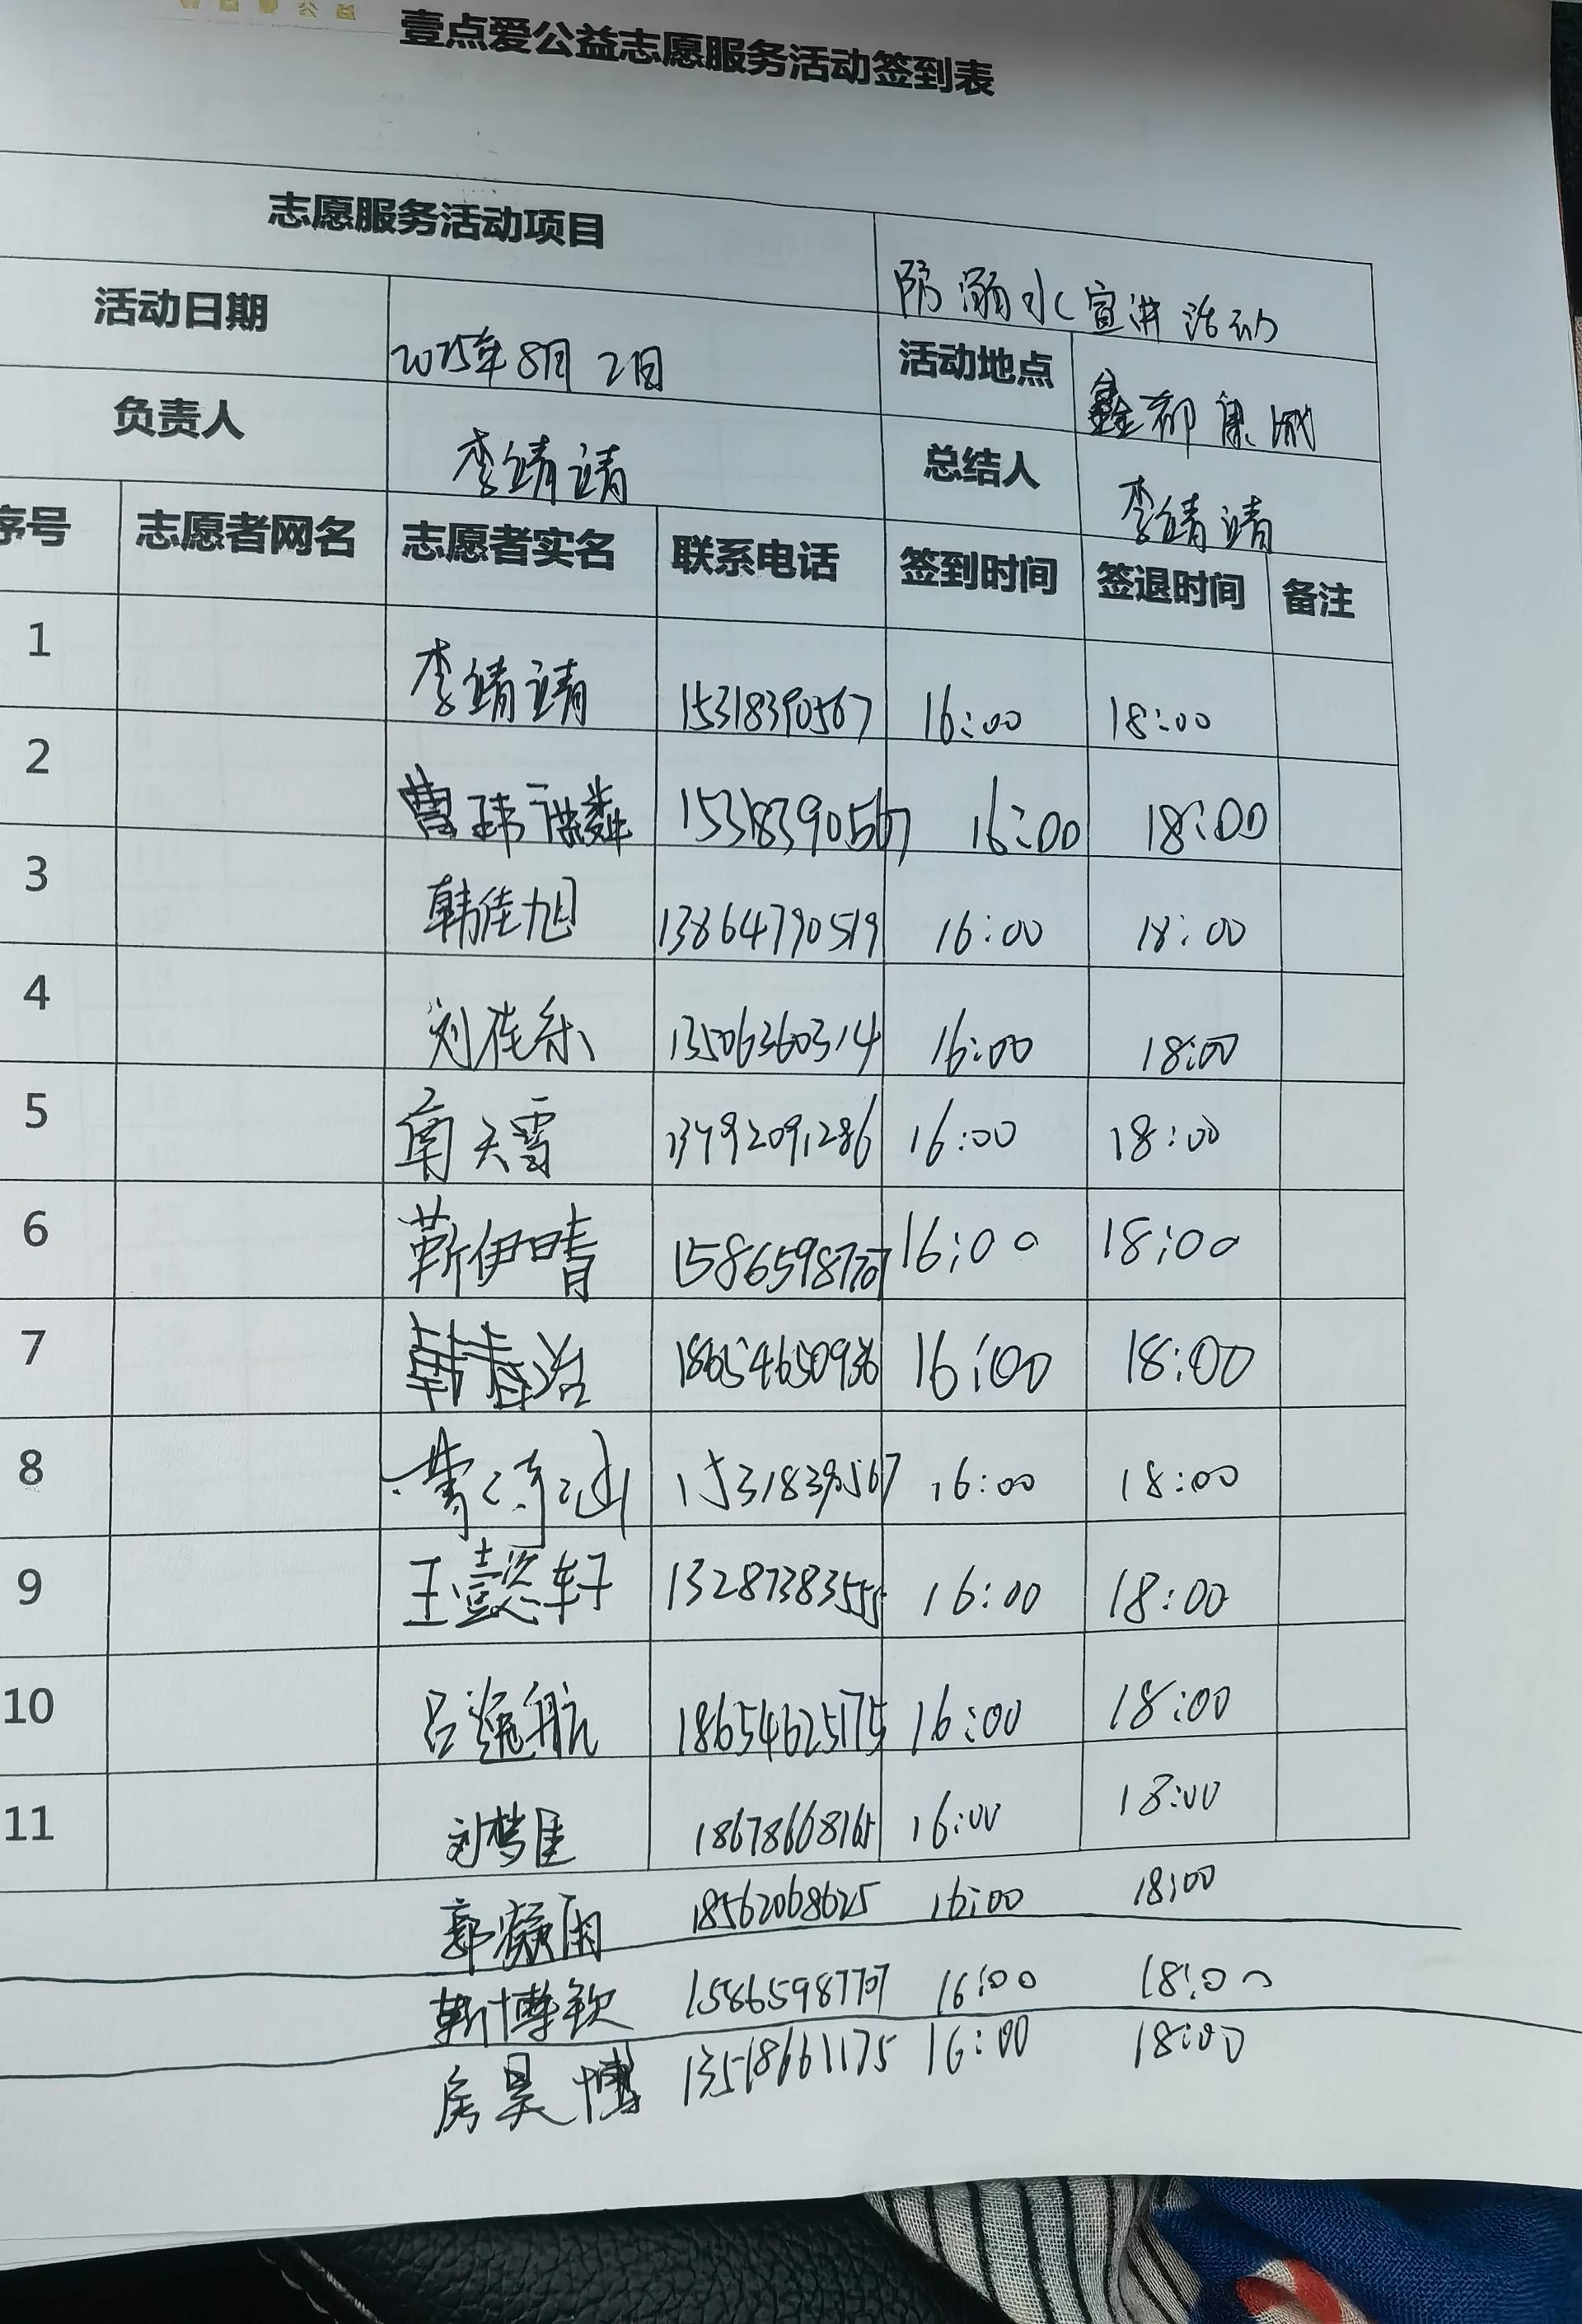 壹点爱公益志愿服务活动签到表
志愿服务活动项目 防溺水宣讲活动
活动日期 2025年8月2日 活动地点 鑫都
负责人 李靖靖 总结人 李靖靖
序号 志愿者网名 志愿者实名 联系电话 签到时间 签退时间 备注
1 李靖靖 15318390567 16:00 18:00
2 曹玮 15318390567 16:00 18:00
3 韩佳旭 13864790519 16:00 18:00
4 刘佳乐 13506360314 16:00 18:00
5 蔺天雪 16:00 18:00
6 靳伊晴 15865987707 16:00 18:00
7 韩春治 18654650936 16:00 18:00
8 16:00 18:00
9 王懿轩 13287383555 16:00 18:00
10 吕逸航 18654625175 16:00 18:00
11 刘梦佳 18678668165 16:00 18:00
郭凝雨 18562068625 16:00 18:00
靳博钦 15865987707 16:00 18:00
房昊博 13518661175 16:00 18:00